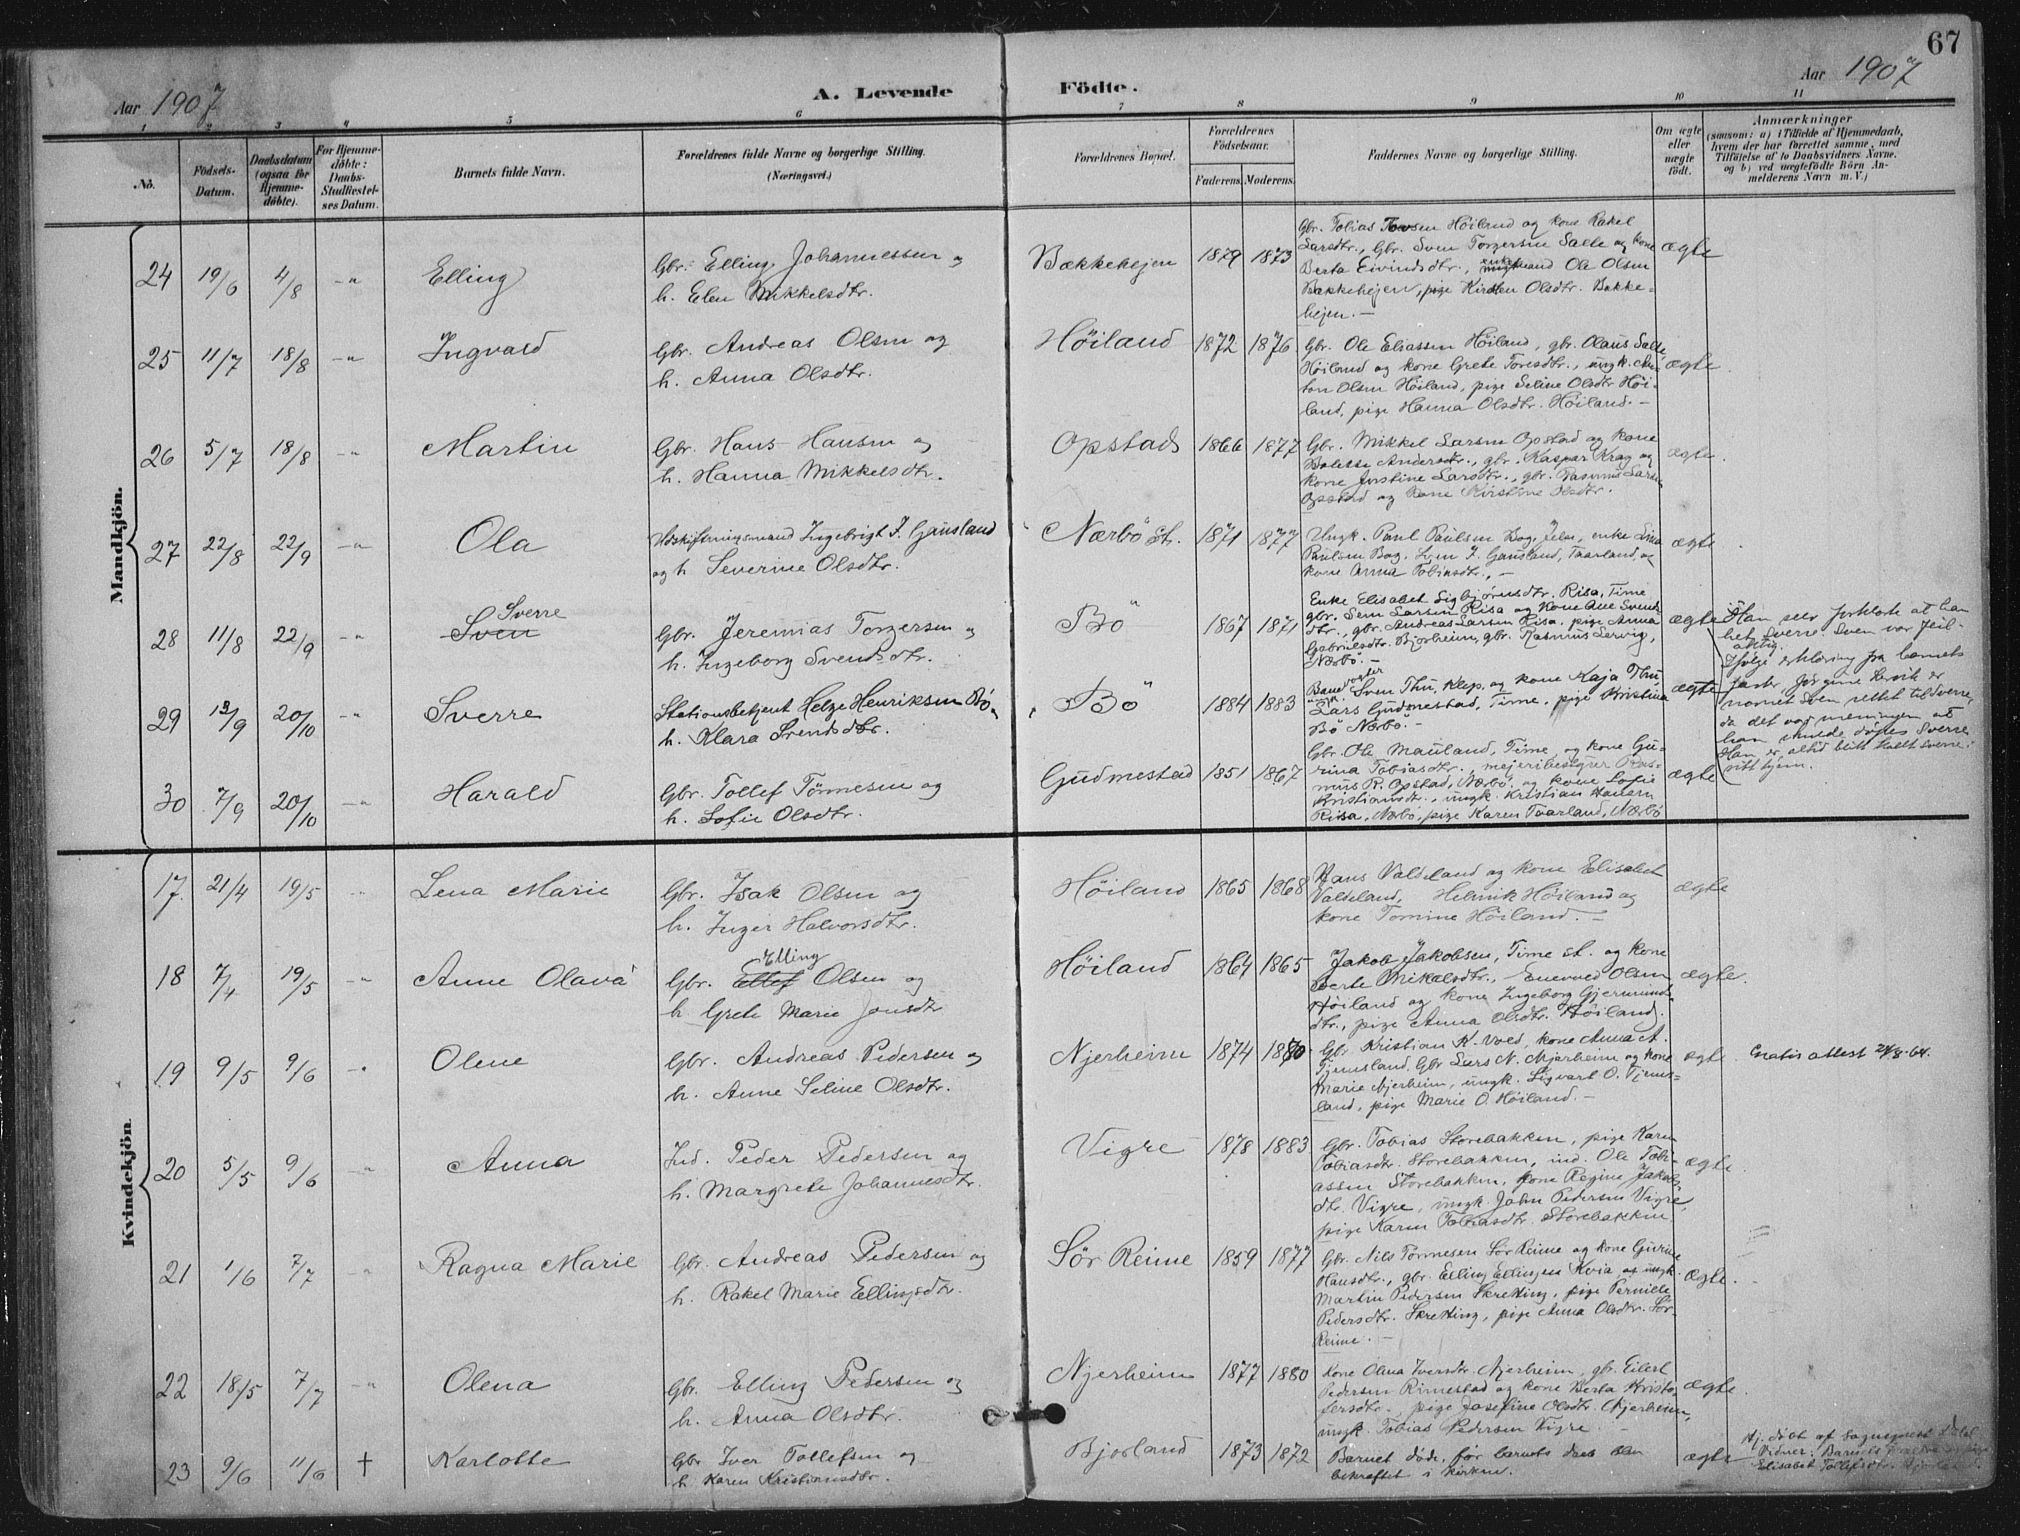 67
Aar 1907
A. Levende Födte.
Aar 1907
1 2 3 4 5 6 7 8 9 10 11
No.
Födsels-
Datum.
Daabsdatum
(ogsaa for
Hjemme-
döbte).
For Hjemme-
döbte:
Daabs-
Stadfæstel-
ses Datum.
Barnets fulde Navn.
Forældrenes fulde Navne og borgerlige Stilling.
(Næringsvei.)
Forældrenes Bopæl.
Forældrenes
Födselsaar.
Faderens.
Moderens.
Faddernes Navne og borgerlige Stilling.
Om ægte
eller
uægte
födt.
Anmærkninger
(saasom: a) i Tilfælde af Hjemmedaab,
hvem der har forrettet samme, med
Tilföielse af to Daabsvidners Navne.
og b) ved uægtefödte Börn An-
melderens Navn m. V.)
Mandkjön.
24 19/6 4/8 -"- Elling
Gbr. Elling Johannessen og
h. Elen Mikkelsdtr.
Bækkehejen 1879 1873
Gbr. Tobias Tovsen Höiland og kone Rakel
Larsdtr., Gbr. Sven Torgersen Salte og kone
Berta Eivindsdtr., enkemand Ole Olsen
Bækkehejen, pige Kirsten Olsdtr. Bække-
hejen. -
ægte
25 11/7 18/8 -"- Ingvald
Gbr. Andreas Olsen og
h. Anna Olsdtr.
Höiland 1872 1876
Gbr. Ole Eliassen Höiland, gbr. Olaus Salte,
Höiland og kone Grete Toresdtr., ungk. An-
ton Olsen Höiland, pige Seline Olsdtr Höi-
land, pige Hanna Olsdtr. Höiland. -
ægte
26 5/7 18/8 -"- Martin
Gbr. Hans Hansen og
h. Hanna Mikkelsdtr.
Opstad 1866 1877
Gbr. Mikkel Larsen Opstad og kone
Bolette Andersdtr., gbr. Kaspar Krag og
kone Justine Larsdtr., gbr. Rasmus Larsen
Opstad og kone Kirstine Olsdtr.
ægte
27 22/8 22/9 -"- Ola
Udskiftningsmand Ingebrigt J. Gausland
og h. Severine Olsdtr.
Nærbö St. 1871 1877
Ungk. Paul Paulsen Bog, Jelse, enke Lina
Paulsen Bog, Sven J. Gausland, Taarland, og
kone Anna Tobiasdtr., -
ægte
28 11/8 22/9 -"- Sverre
Sven
Gbr. Jeremias Torgersen og
h. Ingeborg Svendsdtr.
Bö 1867 1871
Enke Elisabet Sigbjörnsdtr. Risa, Time
gbr. Sem Larsen Risa og kone Ane Svends-
dtr., gbr. Andreas Larsen Risa, pige Anna
Gabrielsdtr. Bjorheim, gbr. Rasmus Serrig,
Nærbö. -
ægte
Han selv forklarte at han
het Sverre. Sven var feil-
aktig.
Ifölge erklæring fra barnets
faster, Jörgine Hervik er
navnet Sven rettet til Sverre,
da det var meningen at
han skulde döpes Sverre.
Han er altid blitt kalt Sverre
29 13/9 20/10 -"- Sverre
Stationsbetjent Helge Henriksen Bö,
h. Klara Svendsdtr.
Bö 1884 1883
Banevogter Sven Thu, Klep, og kone Kaja Thu,
ungk. Lars Gudmestad, Time, pige Kristine
Bö Nærbö. -
ægte
30 7/9 20/10 -"- Harald
Gbr. Tollef Tönnesen og
h. Sofie Olsdtr.
Gudmestad 1851 1867
Gbr. Ole Mauland, Time, og kone Gu-
rina Tobiasdtr., mejeribestyrer Ras-
mus R. Opstad, Nærbö, og kone Sofie
Kristiansdtr., ungk. Kristian Hansen
Risa, Nærbö, pige Karen Taarland, Nærbö
ægte
Kvindekjön.
17. 21/4 19/5 -"- Lena Marie
Gbr. Isak Olsen og
h. Inger Halvorsdtr.
Höiland 1865 1868
Hans Valdeland og kone Elisabet
Valdeland, Helmik Höiland og
kone Tomine Höiland. -
ægte
18 7/4 19/5 -"- Anne Olava
Elling
Gbr. Ellef Olsen og
h. Grete Marie Jonsdtr
Höiland 1864 1865
Jakob Jakobsen, Time st. og kone
Berte Mikalsdtr., Enevved Olsen
Höiland og kone Ingeborg Gjermunds-
dtr., pige Anna Olsdtr. Höiland.
ægte.
19 9/5 9/6 -"- Olene
Gbr. Andreas Pedersen og
h. Anne Seline Olsdtr.
Njerheim 1874 1880
Gbr. Kristian K. Voed, kone Anna A.
Tjensland, Gbr Lars N. Njærheim og kone
Marie Njerheim, ungk. Sigvart O. Tjens-
land, pige Marie O. Höiland. -
ægte
Gratis attest 24/8-64.
20 5/5 9/6 -"- Anna
Ind. Peder Pedersen og
h. Margrete Johannesdtr.
Vigre 1878 1883
Gbr. Tobias Storebakken, pige Karen
Tobiasdtr. Storebakken, ind. Ole Tobi-
assen Storebakken, kone Regine Jakobs-
dtr. Vigre, ungk John Pedersen Vigre,
pige Karen Tobiasdtr. Storebakken
ægte
21 1/6 7/7 -"- Ragna Marie
Gbr. Andreas Pedersen og
h. Rakel Marie Ellingsdtr.
Sör Reime 1859 1877
Gbr. Nils Tönnesen Sör Reime og kone Gurine
Hansdtr., gbr. Elling Ellingsen Kvia og ungk.
Martin Pedersen Skretting, pige Pernille
Pedersdtr. Skretting, pige Anna Olsdtr. Sör-
Reime. -
ægte.
22 18/5 7/7 -"- Olena
Gbr. Elling Pedersen og
h. Anna Olsdtr.
Njerheim 1877 1880
Kone Olina Iversdtr. Njerheim, gbr. Eilert
Pedersen Rimestad og kone Berta Kristo-
fersdtr. pige Josefine Olsdtr. Njerheim,
ungk. Tobias Pedersen Vigre. -
ægte
23 9/6 11/6 + Karlotte
Gbr Iver Tollefsen og
h. Karen Kristiansdtr.
Bjorland 1873 1872
Barnet döde, för barnets daab blev
bekræftet i kirken.
ægte
Hj. döbt af Sognepræst
Vidner: Barnets og pige
Elisabet Tollefsdtr.